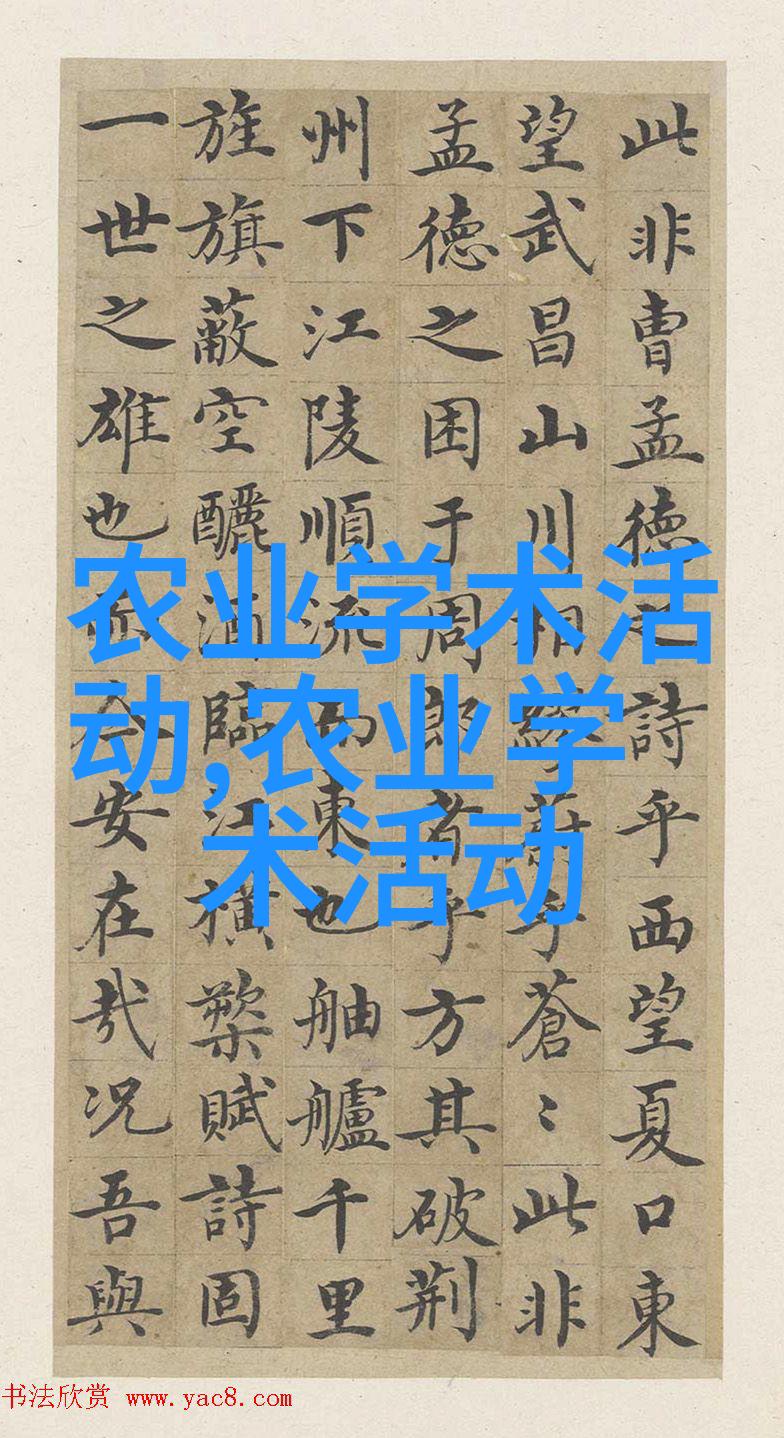 此非曹孟德之詩乎西望夏口東
望武昌山川相繆乎蒼〻此非
孟德之困于周郎者乎方其破荊
州下江陵順流而東也舳艫千里
旌旗蔽空釃酒臨江橫槊賦詩固
一世之雄也而今安在哉况吾與
农业学术活
动,农业学
术活动
书法欣赏 www.yac8.com